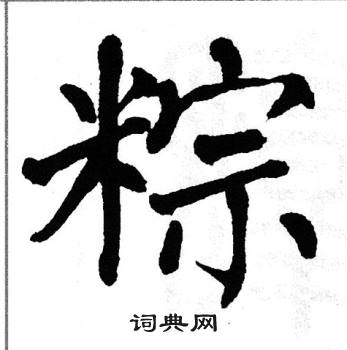 粽
词典网